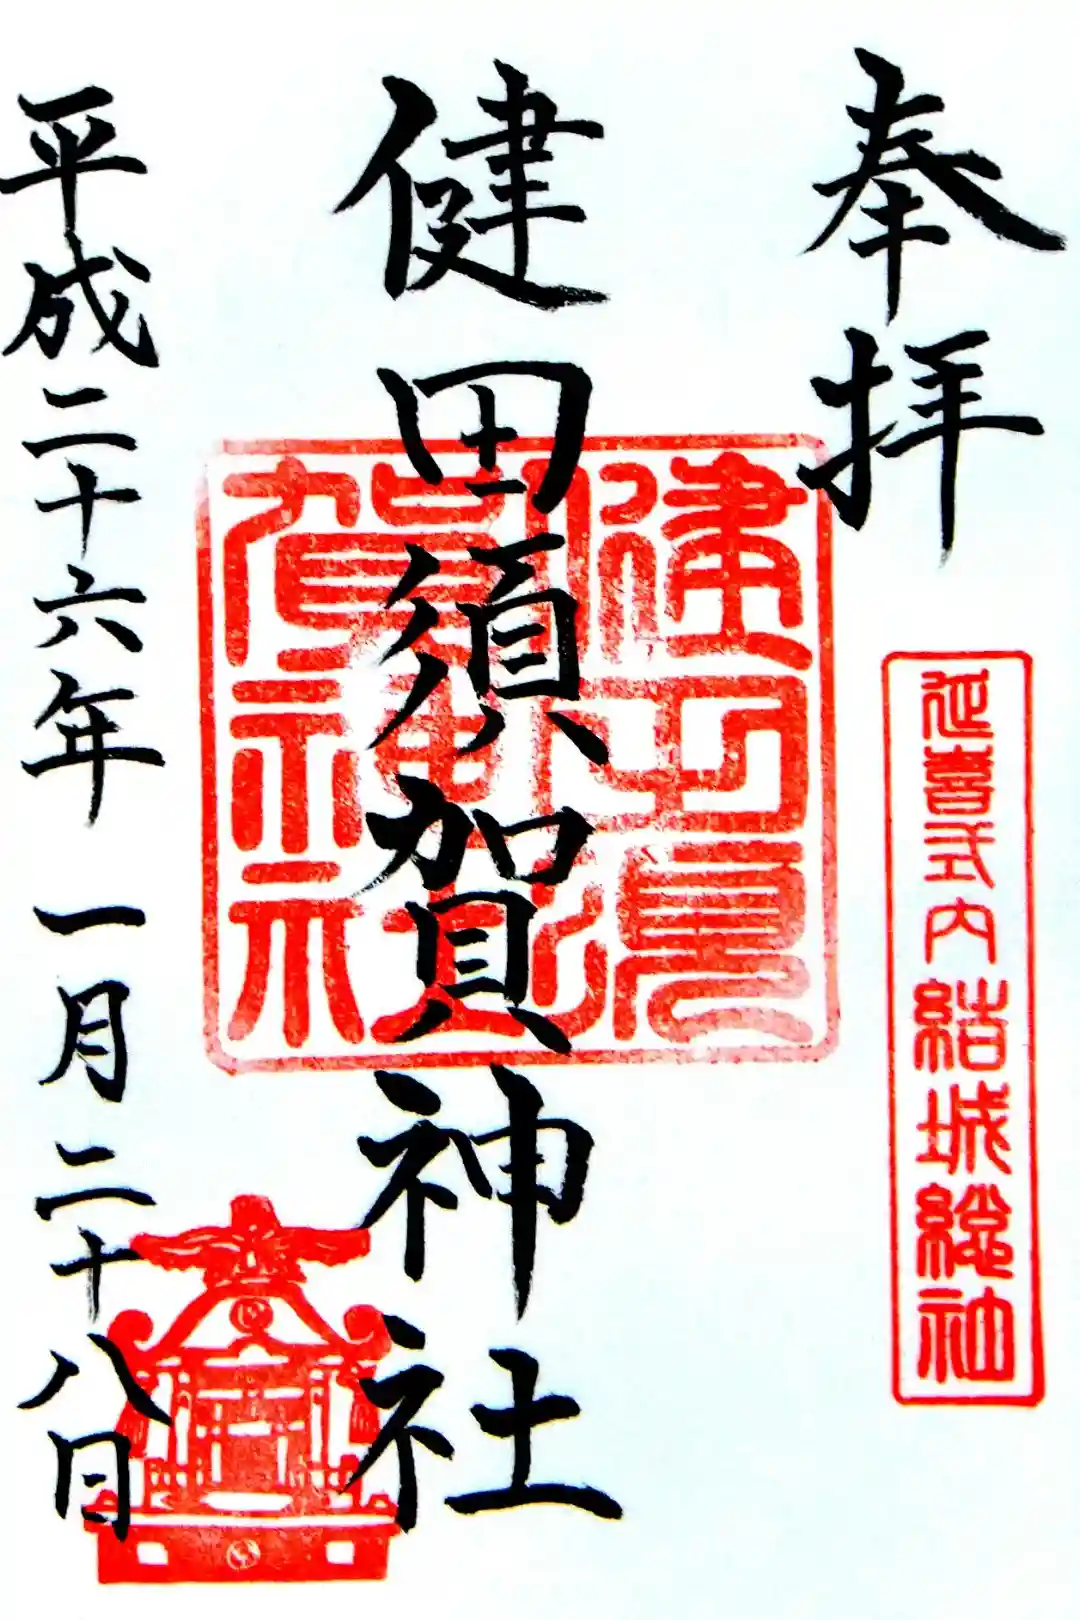 奉拝
延喜式内結城総社
健田須賀神社
健田須賀神社
平成二十六年一月二十八日